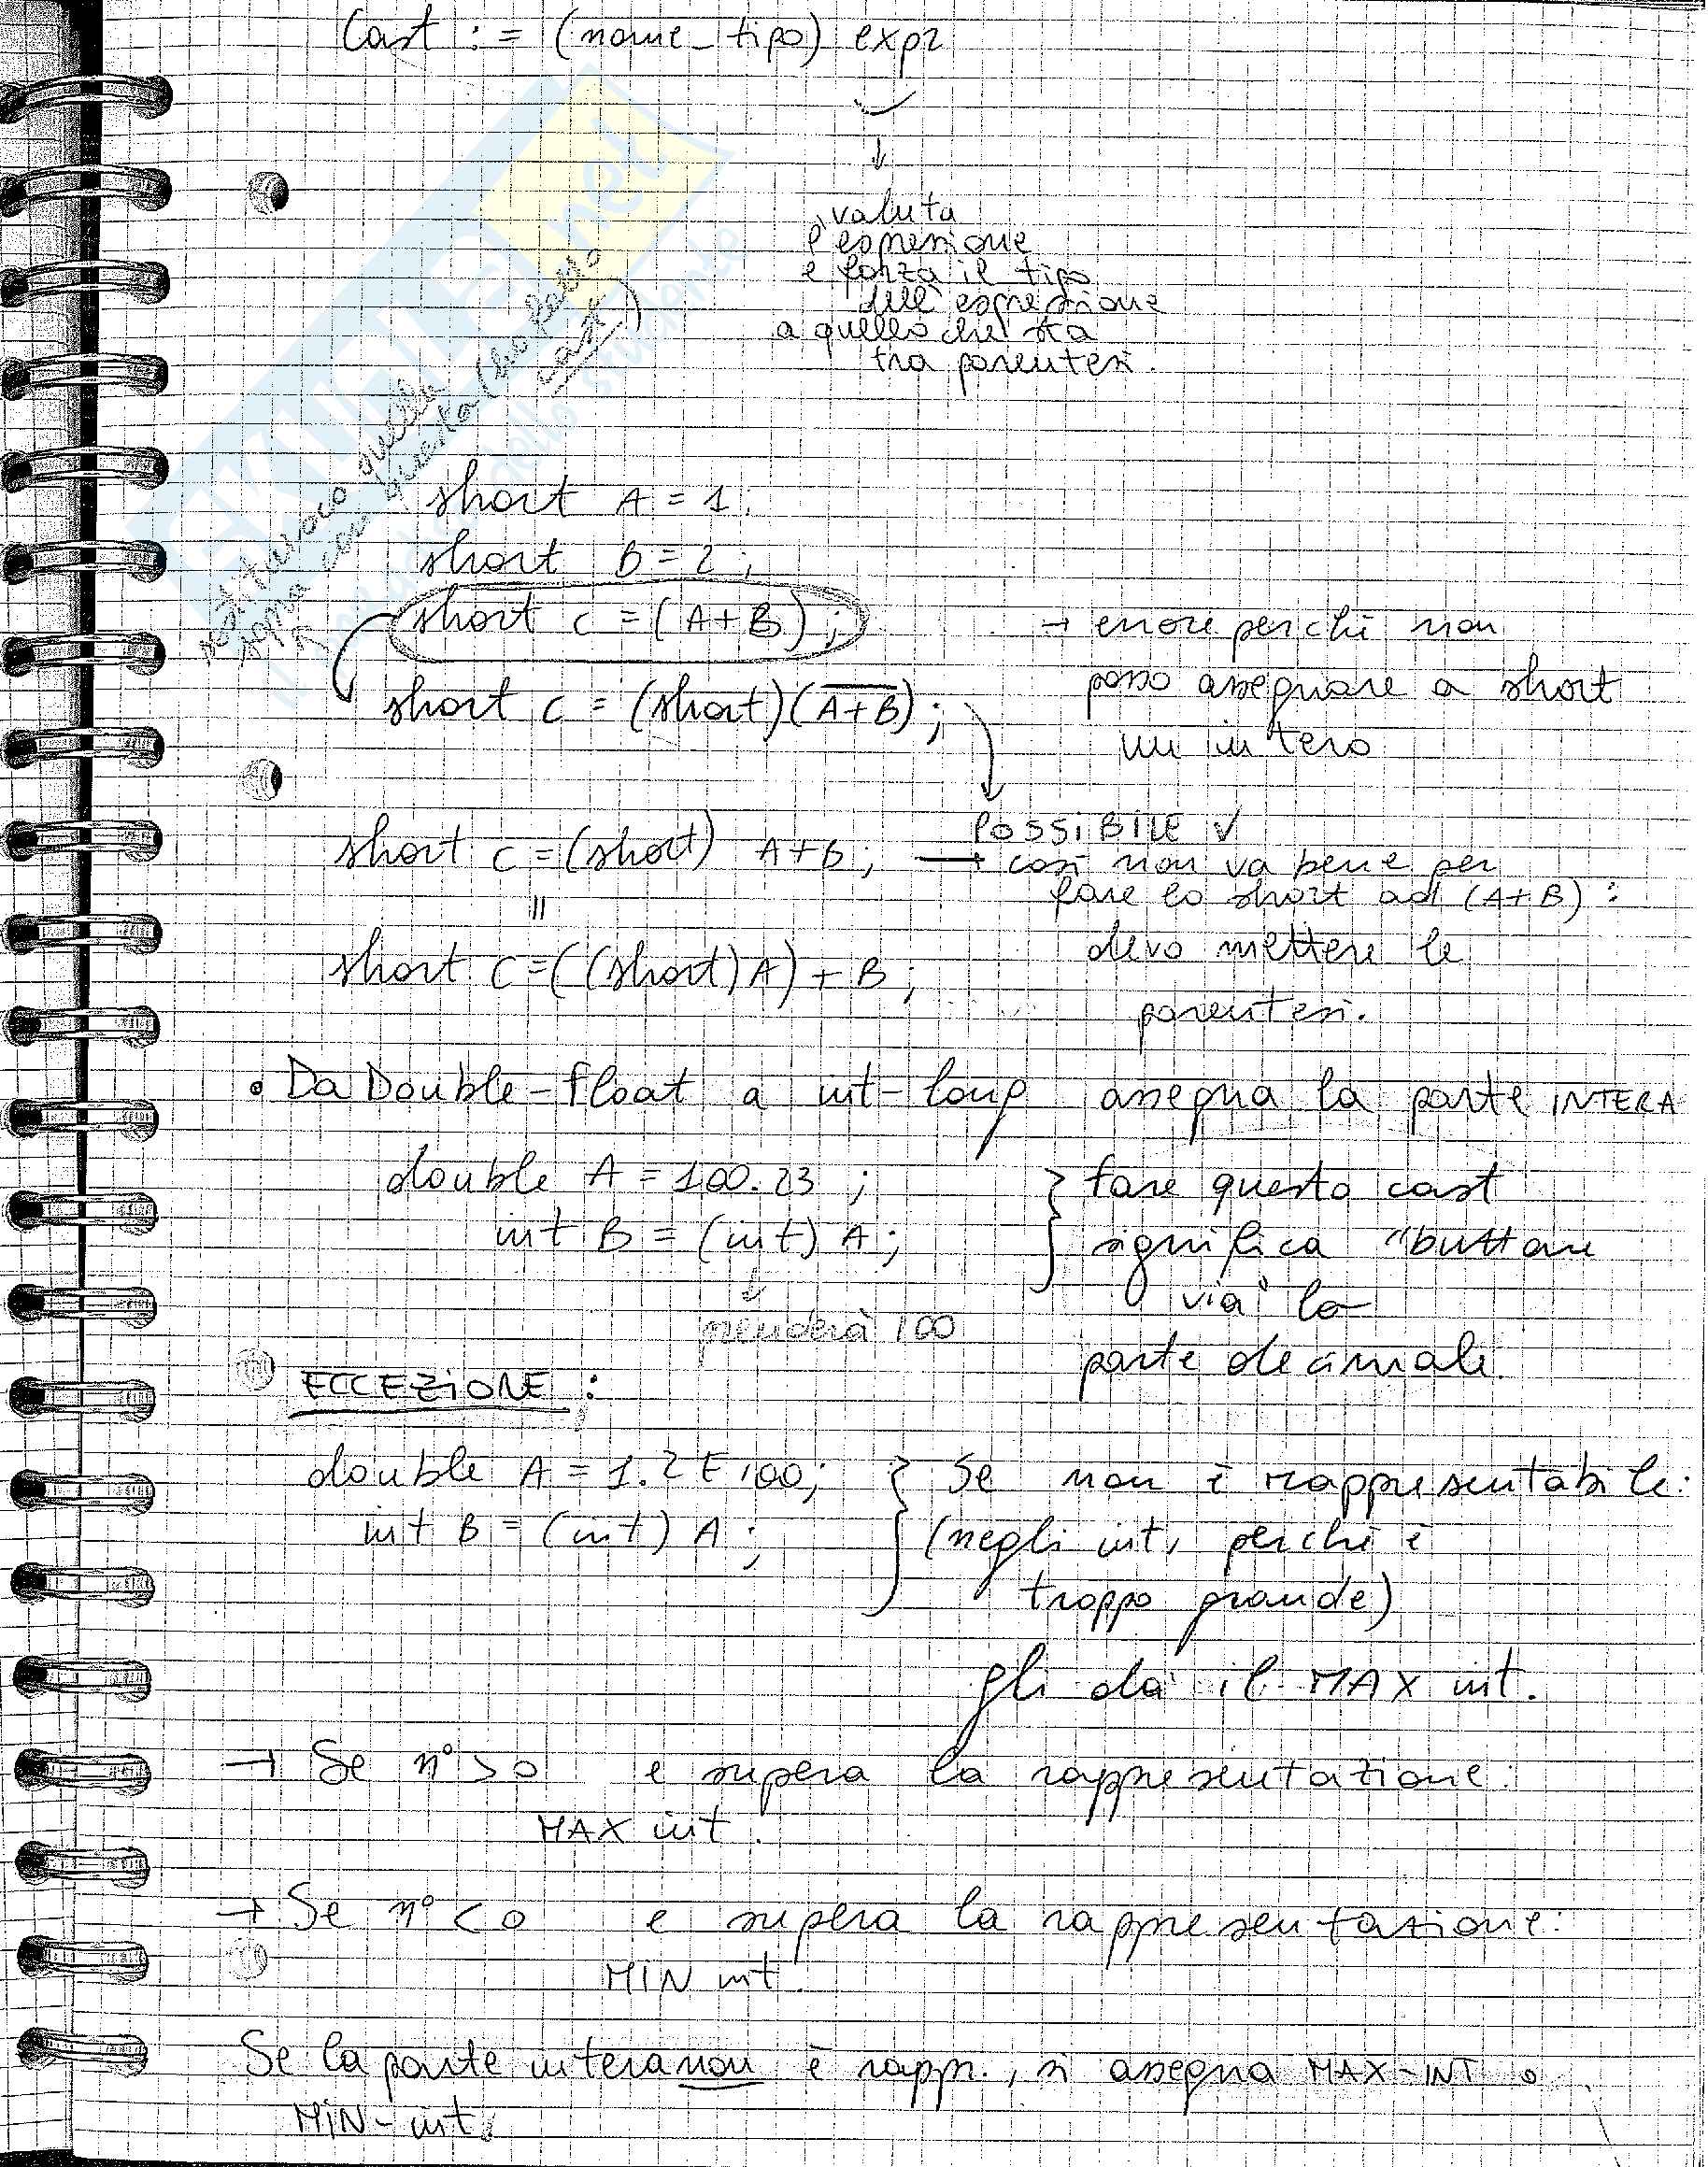 Cast := (nome_tipo) expr
↓
valuta
l'espressione
e forza il tipo
dell'espressione
a quello che sta
tra parentesi.
sostituisco quella
sopra con questa (ho fatto
cast)
short A = 1;
short B = 2;
short C = (A+B);
→ errore perchè non
posso assegnare a short
un intero
short C = (short)(A+B);
POSSIBILE ✓
short C = (short) A+B; → così non va bene per
fare lo short ad (A+B):
devo mettere le
parentesi.
=
short C = ((short)A) + B;
• Da Double-float a int-long assegna la parte INTERA
double A = 100.23;
int B = (int) A;
↓
prenderà 100
} fare questo cast
significa "buttare
via" la
parte decimale.
ECCEZIONE:
double A = 1.2E100;
int B = (int) A;
} Se non è rappresentabile:
(negli int, perchè è
troppo grande)
gli dà il MAX int.
→ Se n° > 0 e supera la rappresentazione:
MAX int.
→ Se n° < 0 e supera la rappresentazione:
MIN int.
Se la parte intera non è rappr., si assegna MAX-INT o
MIN-int.